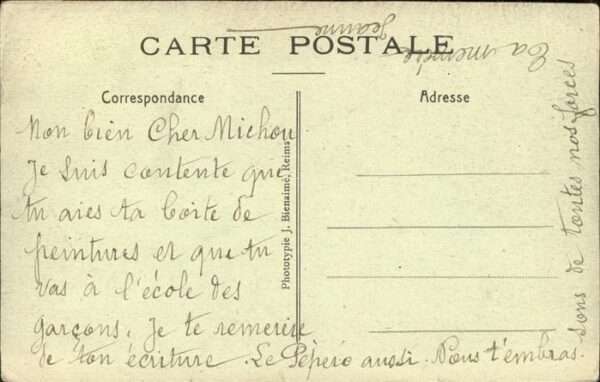 CARTE POSTALE
Correspondance
Adresse
Mon bien Cher Michou
Je suis contente que
tu aies ta boite de
peintures et que tu
vas à l'école des
garçons. Je te remercie
de ton écriture. Le Pépère aussi. Nous t'embras-
sons de toutes nos forces
Ta mémère
Jeanne
Phototypie J. Bienaimé, Reims